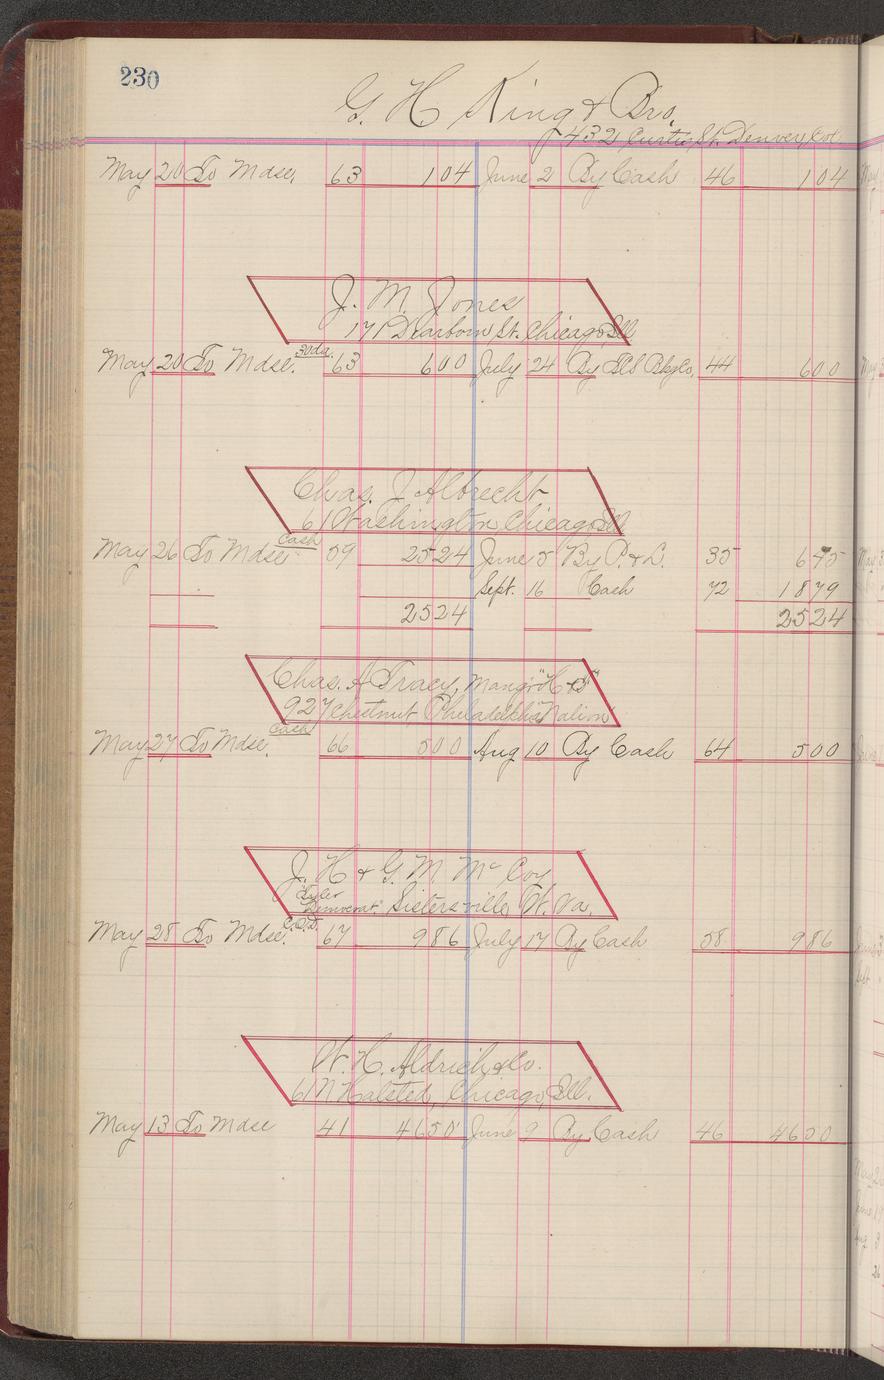 230
G. H. King & Bro.
1432 Curtis St. Denver, Col.
May 20 To Mdse. 63 104 June 2 By Cash 46 104
J. M. Jones
171 Dearborn St. Chicago Ill
May 20 To Mdse. 30da. 63 600 July 24 By Bkg Co. 44 600
Chas. J. Albrecht
61 Washington Chicago Ill
May 26 To Mdse Cash 59 2524 June 5 By P. & L. 35 645
Sept. 16 Cash 72 1879
2524 2524
Chas. A Tracy, Mangr "H &
927 Chestnut Philadelphia Nation"
May 27 To Mdse. Cash 66 500 Aug 10 By Cash 64 500
J. H & G. M. McCoy
"Tyler Democrat." Sistersville, W. Va.
May 28 To Mdse. C.O.D. 67 986 July 17 By Cash 58 986
W. H. Aldrich & Co.
61 N Halsted, Chicago, Ill.
May 13 To Mdse 41 4650 June 9 By Cash 46 4650